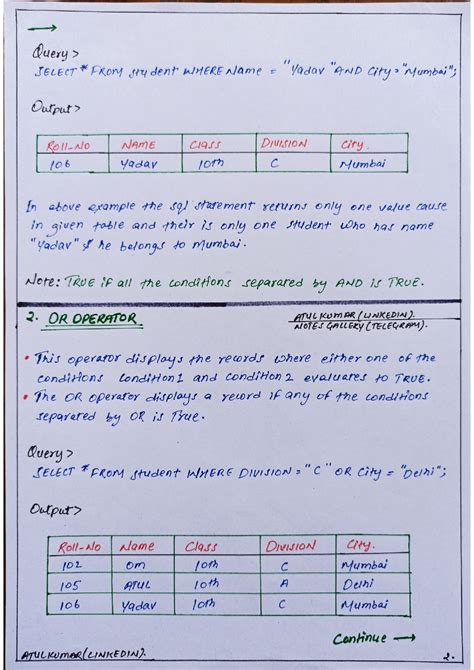 Query >
SELECT * FROM student WHERE Name = "Yadav" AND City = "Mumbai";
Output >
Roll-NO NAME Class DIVISION City.
106 Yadav 10th C Mumbai
In above example the sql statement returns only one value cause
in given table and their is only one student who has name
"Yadav" & he belongs to Mumbai.
Note: TRUE if all the conditions separated by AND is TRUE.
2. OR OPERATOR
ATULKUMAR (LINKEDIN).
NOTES GALLERY (TELEGRAM).
• This operator displays the records where either one of the
conditions condition1 and condition2 evaluates to TRUE.
• The OR operator displays a record if any of the conditions
separated by OR is True.
Query >
SELECT * FROM student WHERE DIVISION = "C" OR City = "Delhi";
Output >
Roll-No Name Class DIVISION City.
102 Om 10th C Mumbai
105 ATUL 10th A Delhi
106 Yadav 10th C Mumbai
Continue →
ATULKUMAR (LINKEDIN).
2.